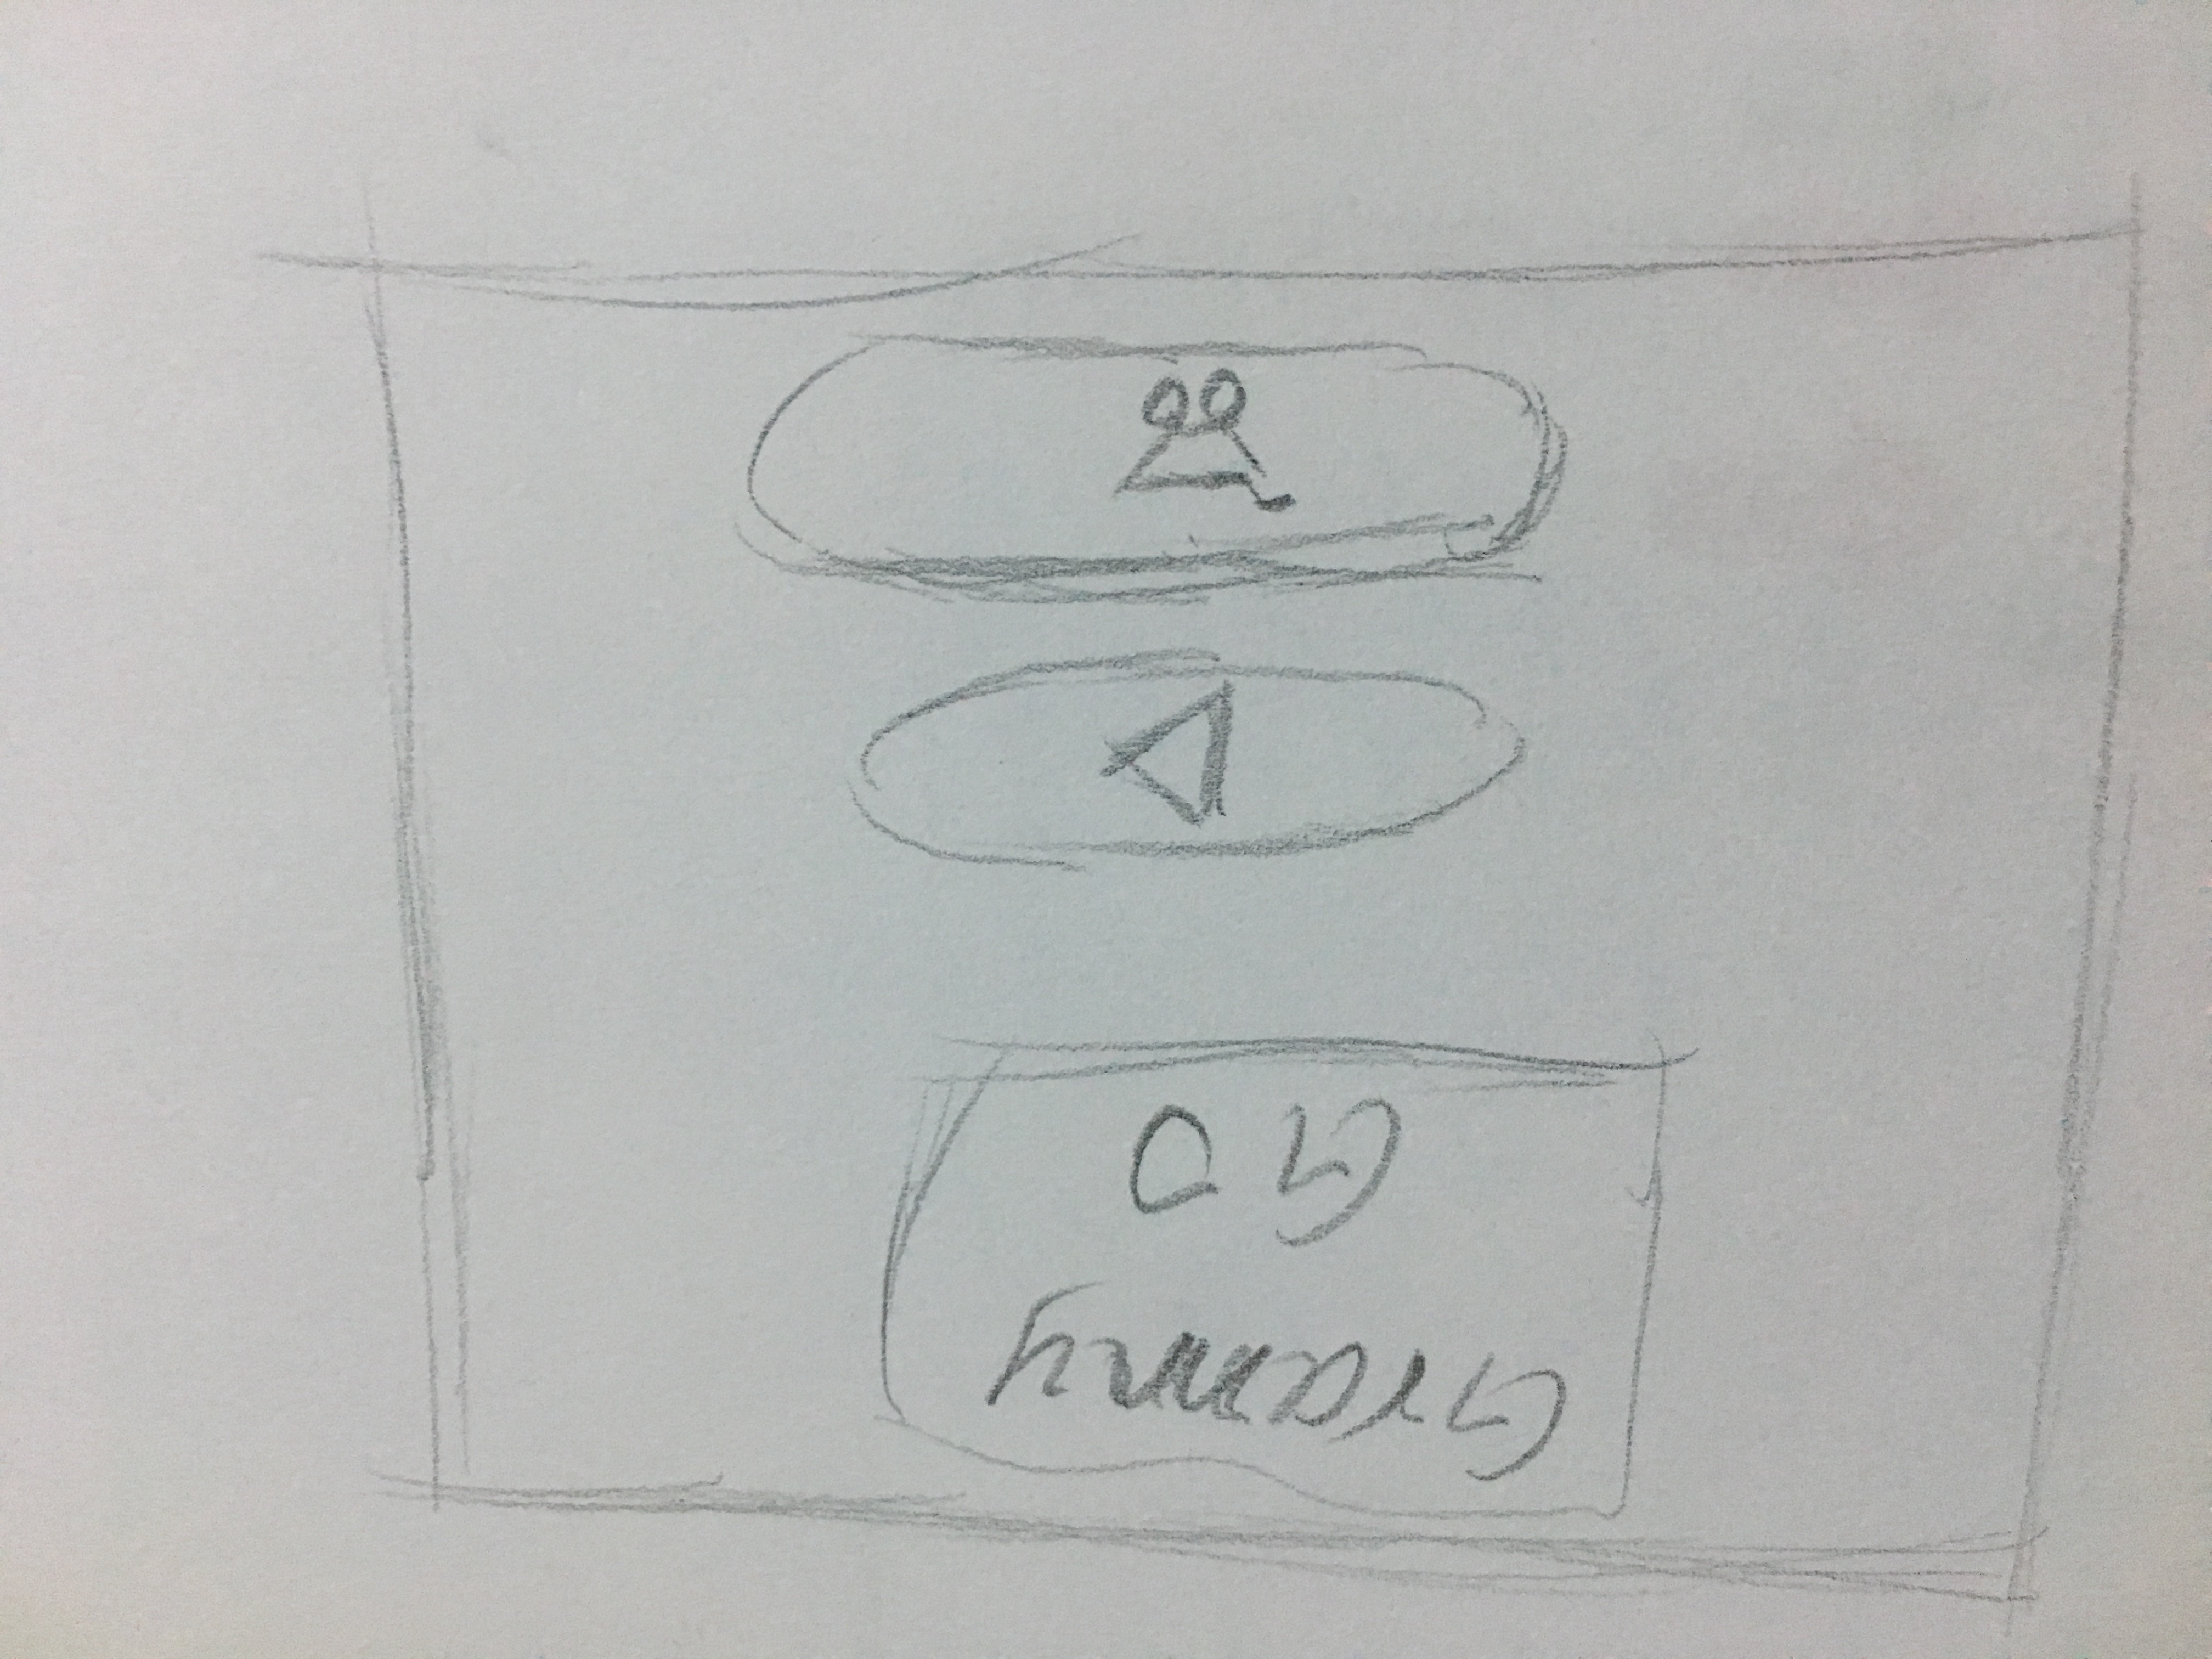 Granny
GO